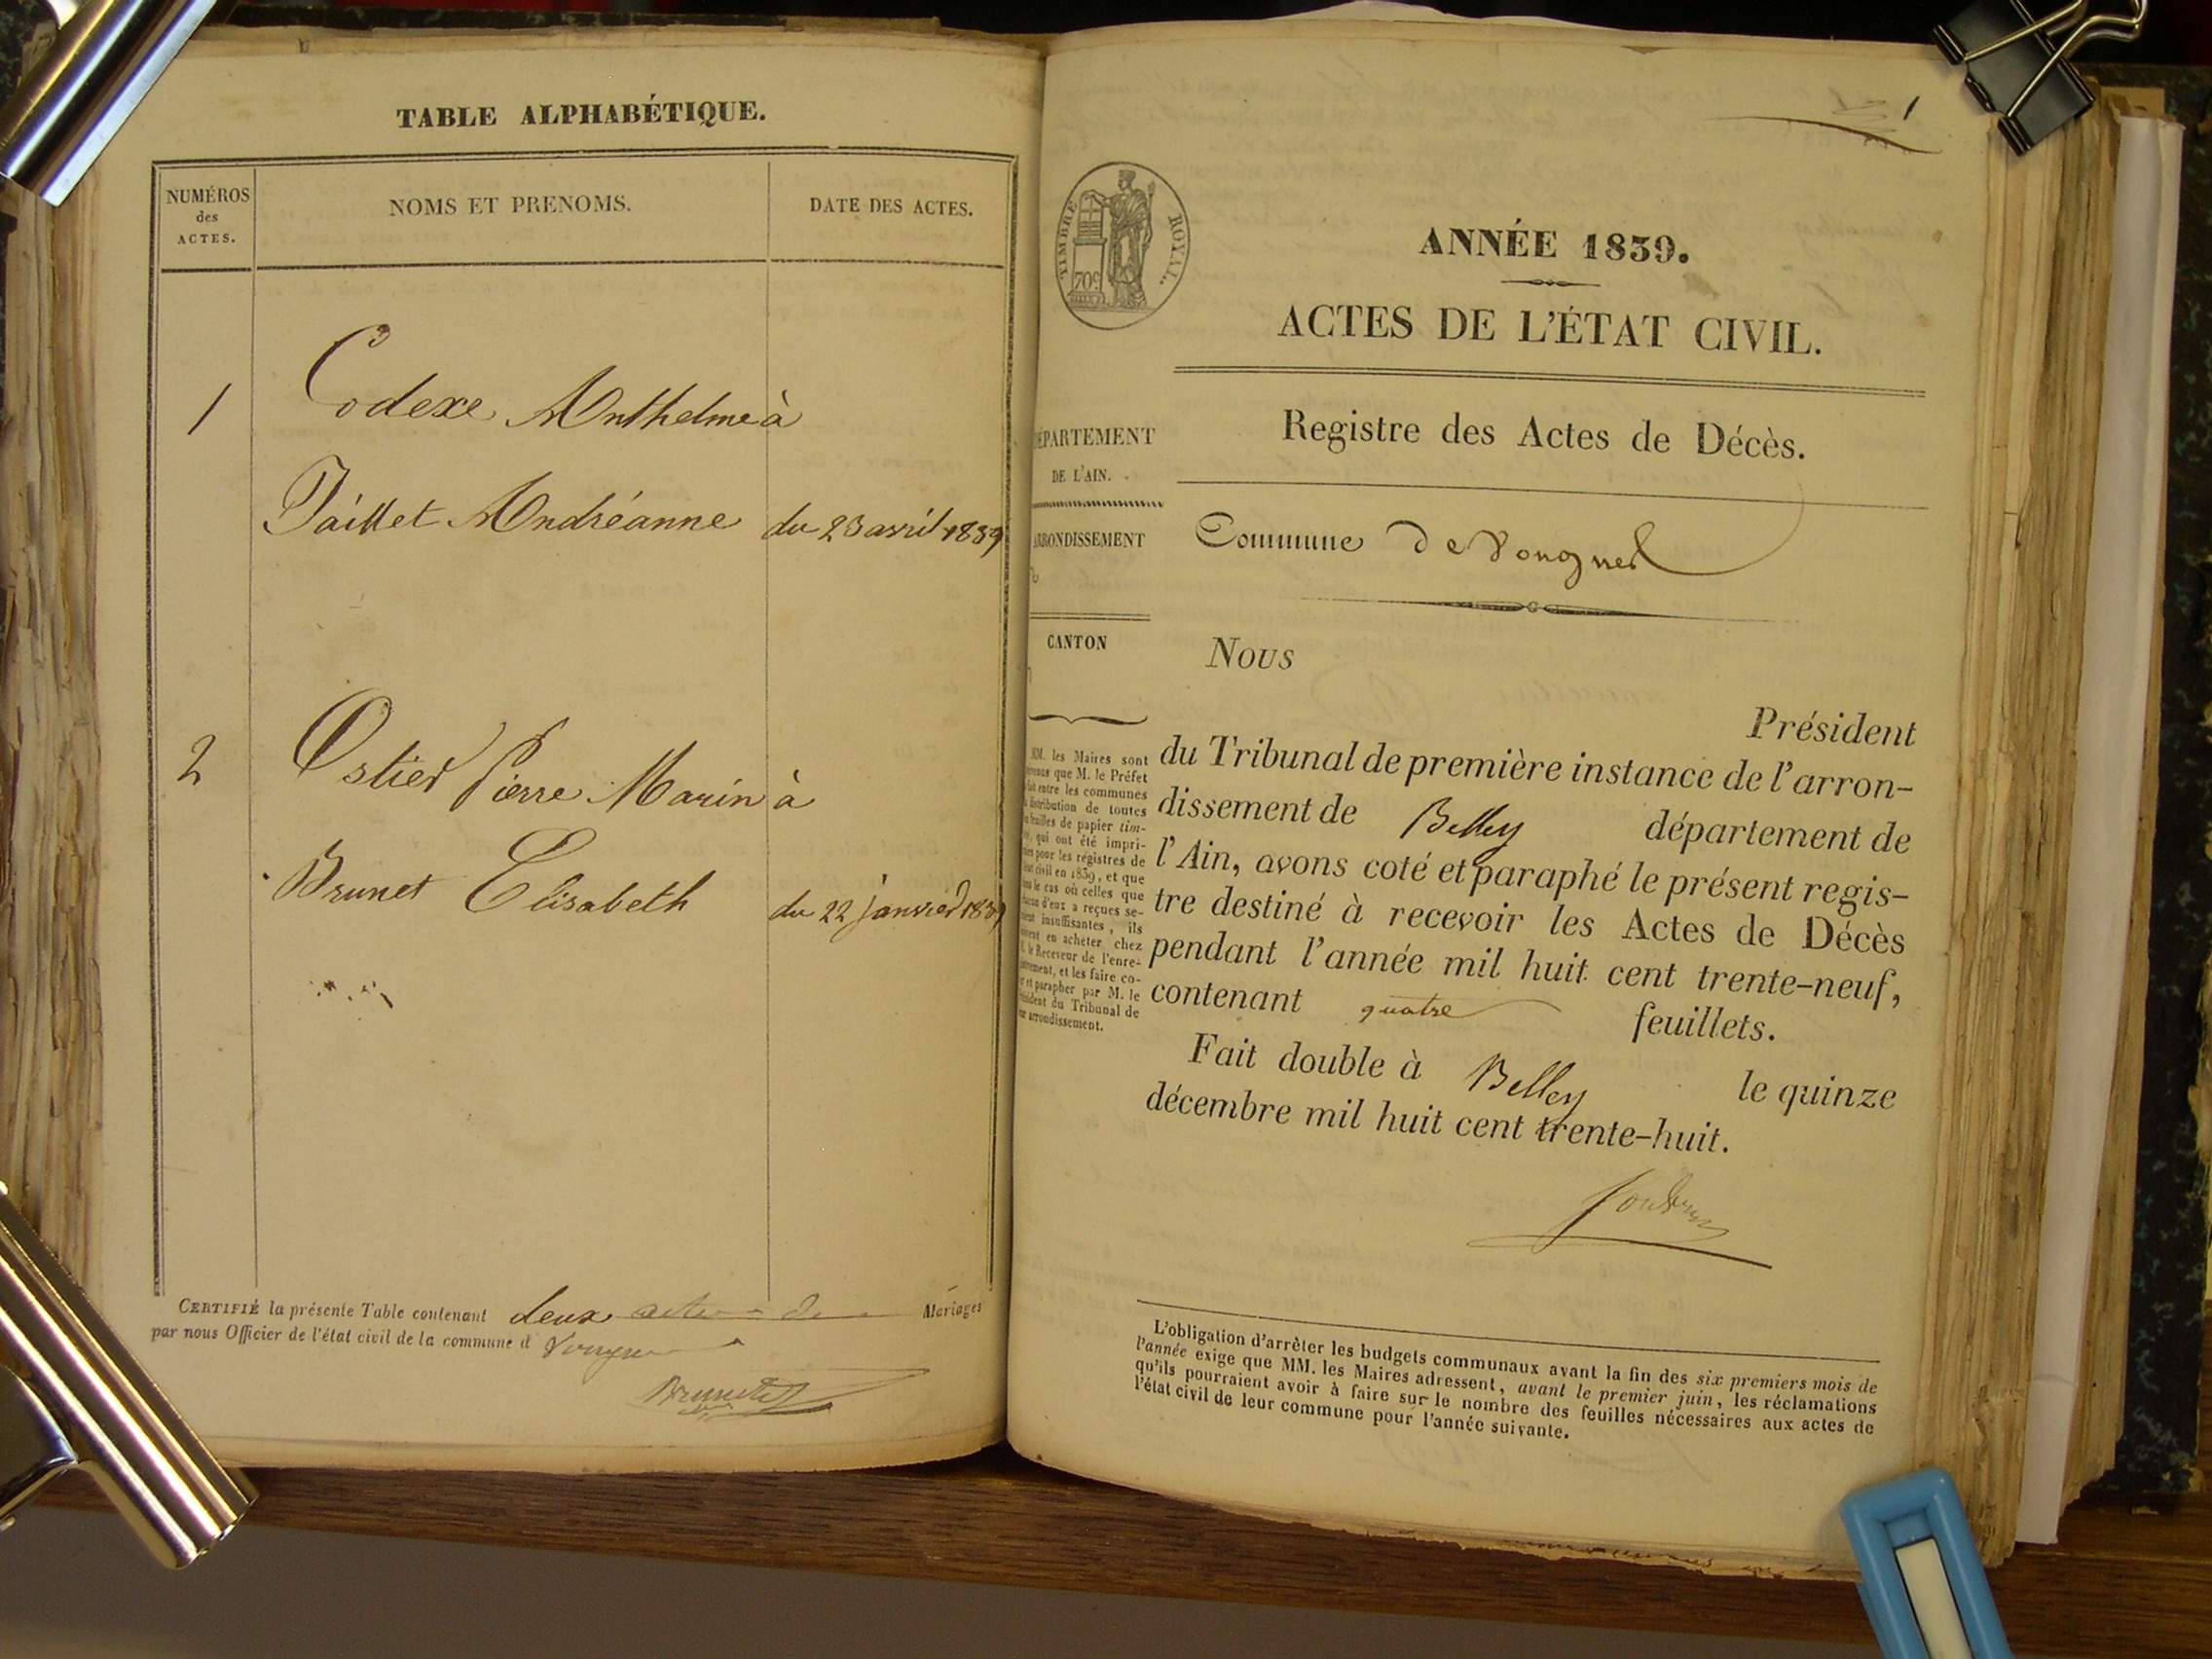 TABLE ALPHABÉTIQUE.
NUMÉROS
des
ACTES.
NOMS ET PRENOMS.
DATE DES ACTES.
1
Codexe Anthelme à
Jaillet Andréanne du 23 avril 1839
2
Ostier Pierre Marin à
Brunet Elisabeth du 22 janvier 1839
CERTIFIÉ la présente Table contenant deux actes de Mariages
par nous Officier de l'état civil de la commune d
1
TIMBRE ROYAL.
70c
ANNÉE 1839.
ACTES DE L'ÉTAT CIVIL.
Registre des Actes de Décès.
ÉPARTEMENT
DE L'AIN.
RRONDISSEMENT
Commune de Vongnes
CANTON
Nous
Président
du Tribunal de première instance de l'arron-
dissement de Belley département de
l'Ain, avons coté et paraphé le présent regis-
tre destiné à recevoir les Actes de Décès
pendant l'année mil huit cent trente-neuf,
contenant quatre feuillets.
Fait double à Belley le quinze
décembre mil huit cent trente-huit.
MM. les Maires sont
que M. le Préfet
entre les communes
distribution de toutes
feuilles de papier tim-
qui ont été impri-
pour les régistres de
civil en 1839, et que
le cas où celles que
d'eux a reçues se-
insuffisantes, ils
en acheter chez
le Receveur de l'enre-
et les faire co-
et parapher par M. le
du Tribunal de
arrondissement.
L'obligation d'arrêter les budgets communaux avant la fin des six premiers mois de
l'année exige que MM. les Maires adressent, avant le premier juin, les réclamations
qu'ils pourraient avoir à faire sur le nombre des feuilles nécessaires aux actes de
l'état civil de leur commune pour l'année suivante.